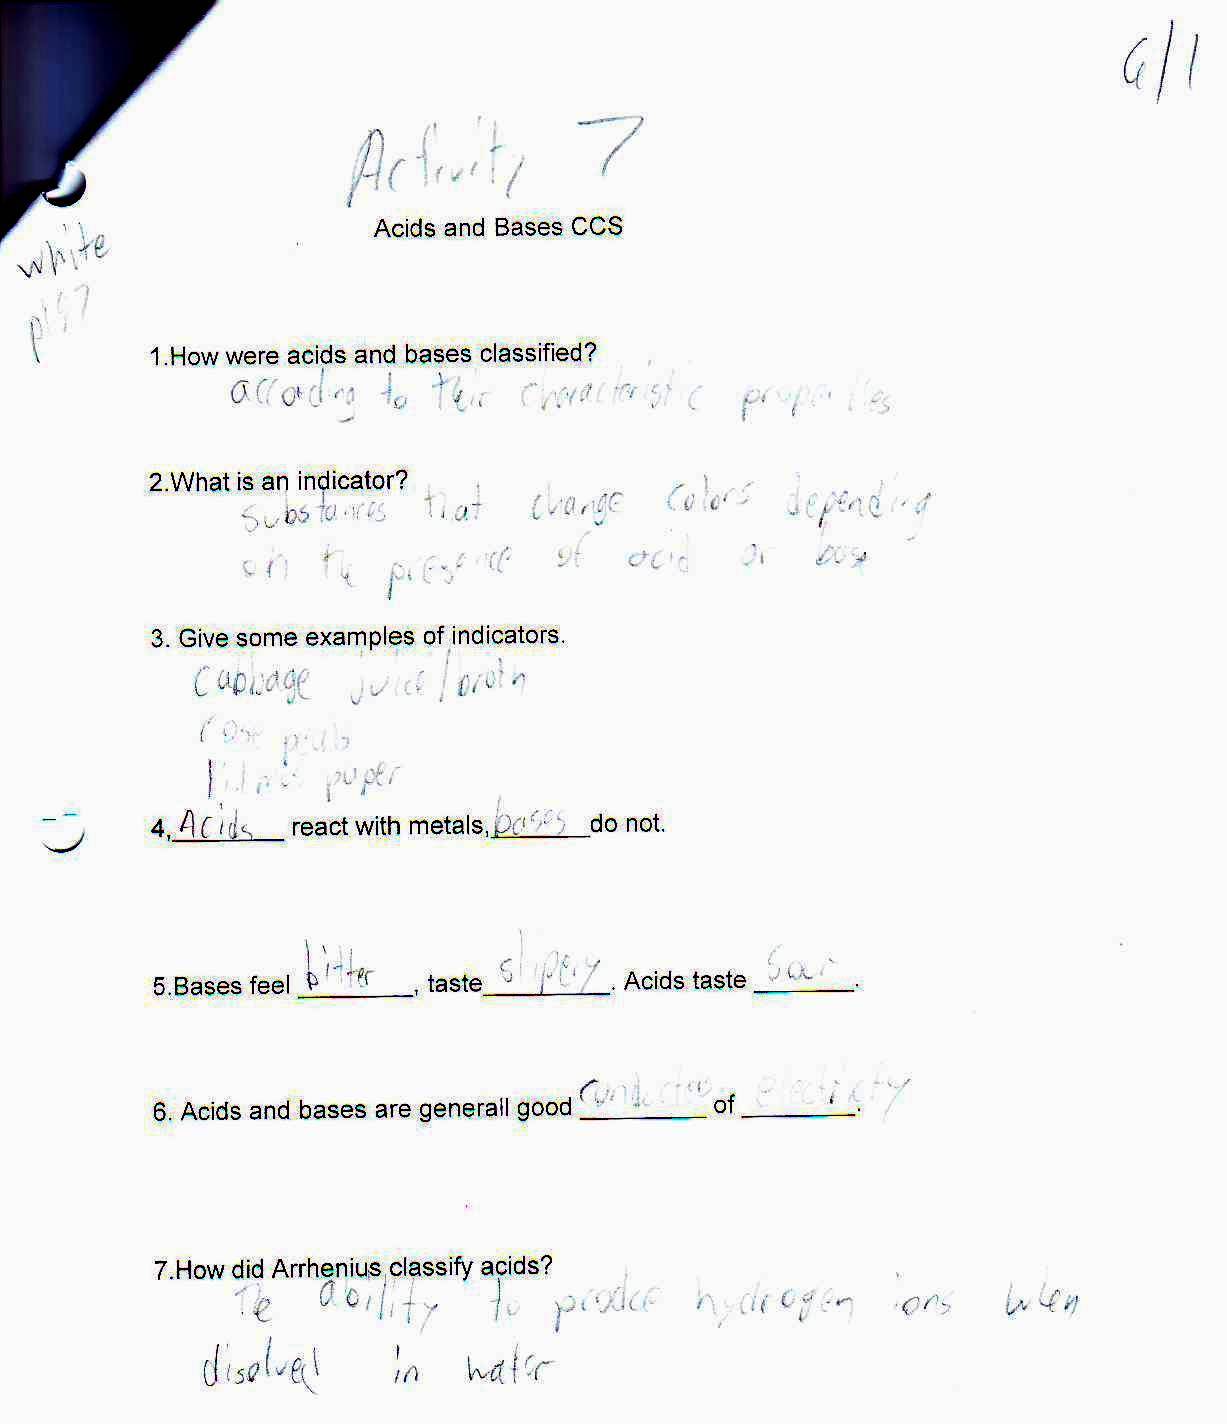 6/1
Activity 7
Acids and Bases CCS
white
p157
1.How were acids and bases classified?
according to their characteristic properties
2.What is an indicator?
substances that change colors depending
on the presence of acid or base
3. Give some examples of indicators.
cabbage juice/broth
rose petals
litmus paper
4. Acids react with metals, bases do not.
5.Bases feel bitter, taste slipery. Acids taste Sour.
6. Acids and bases are generall good conductors of electricty.
7.How did Arrhenius classify acids?
The ability to produce hydrogen ions when
disolved in water